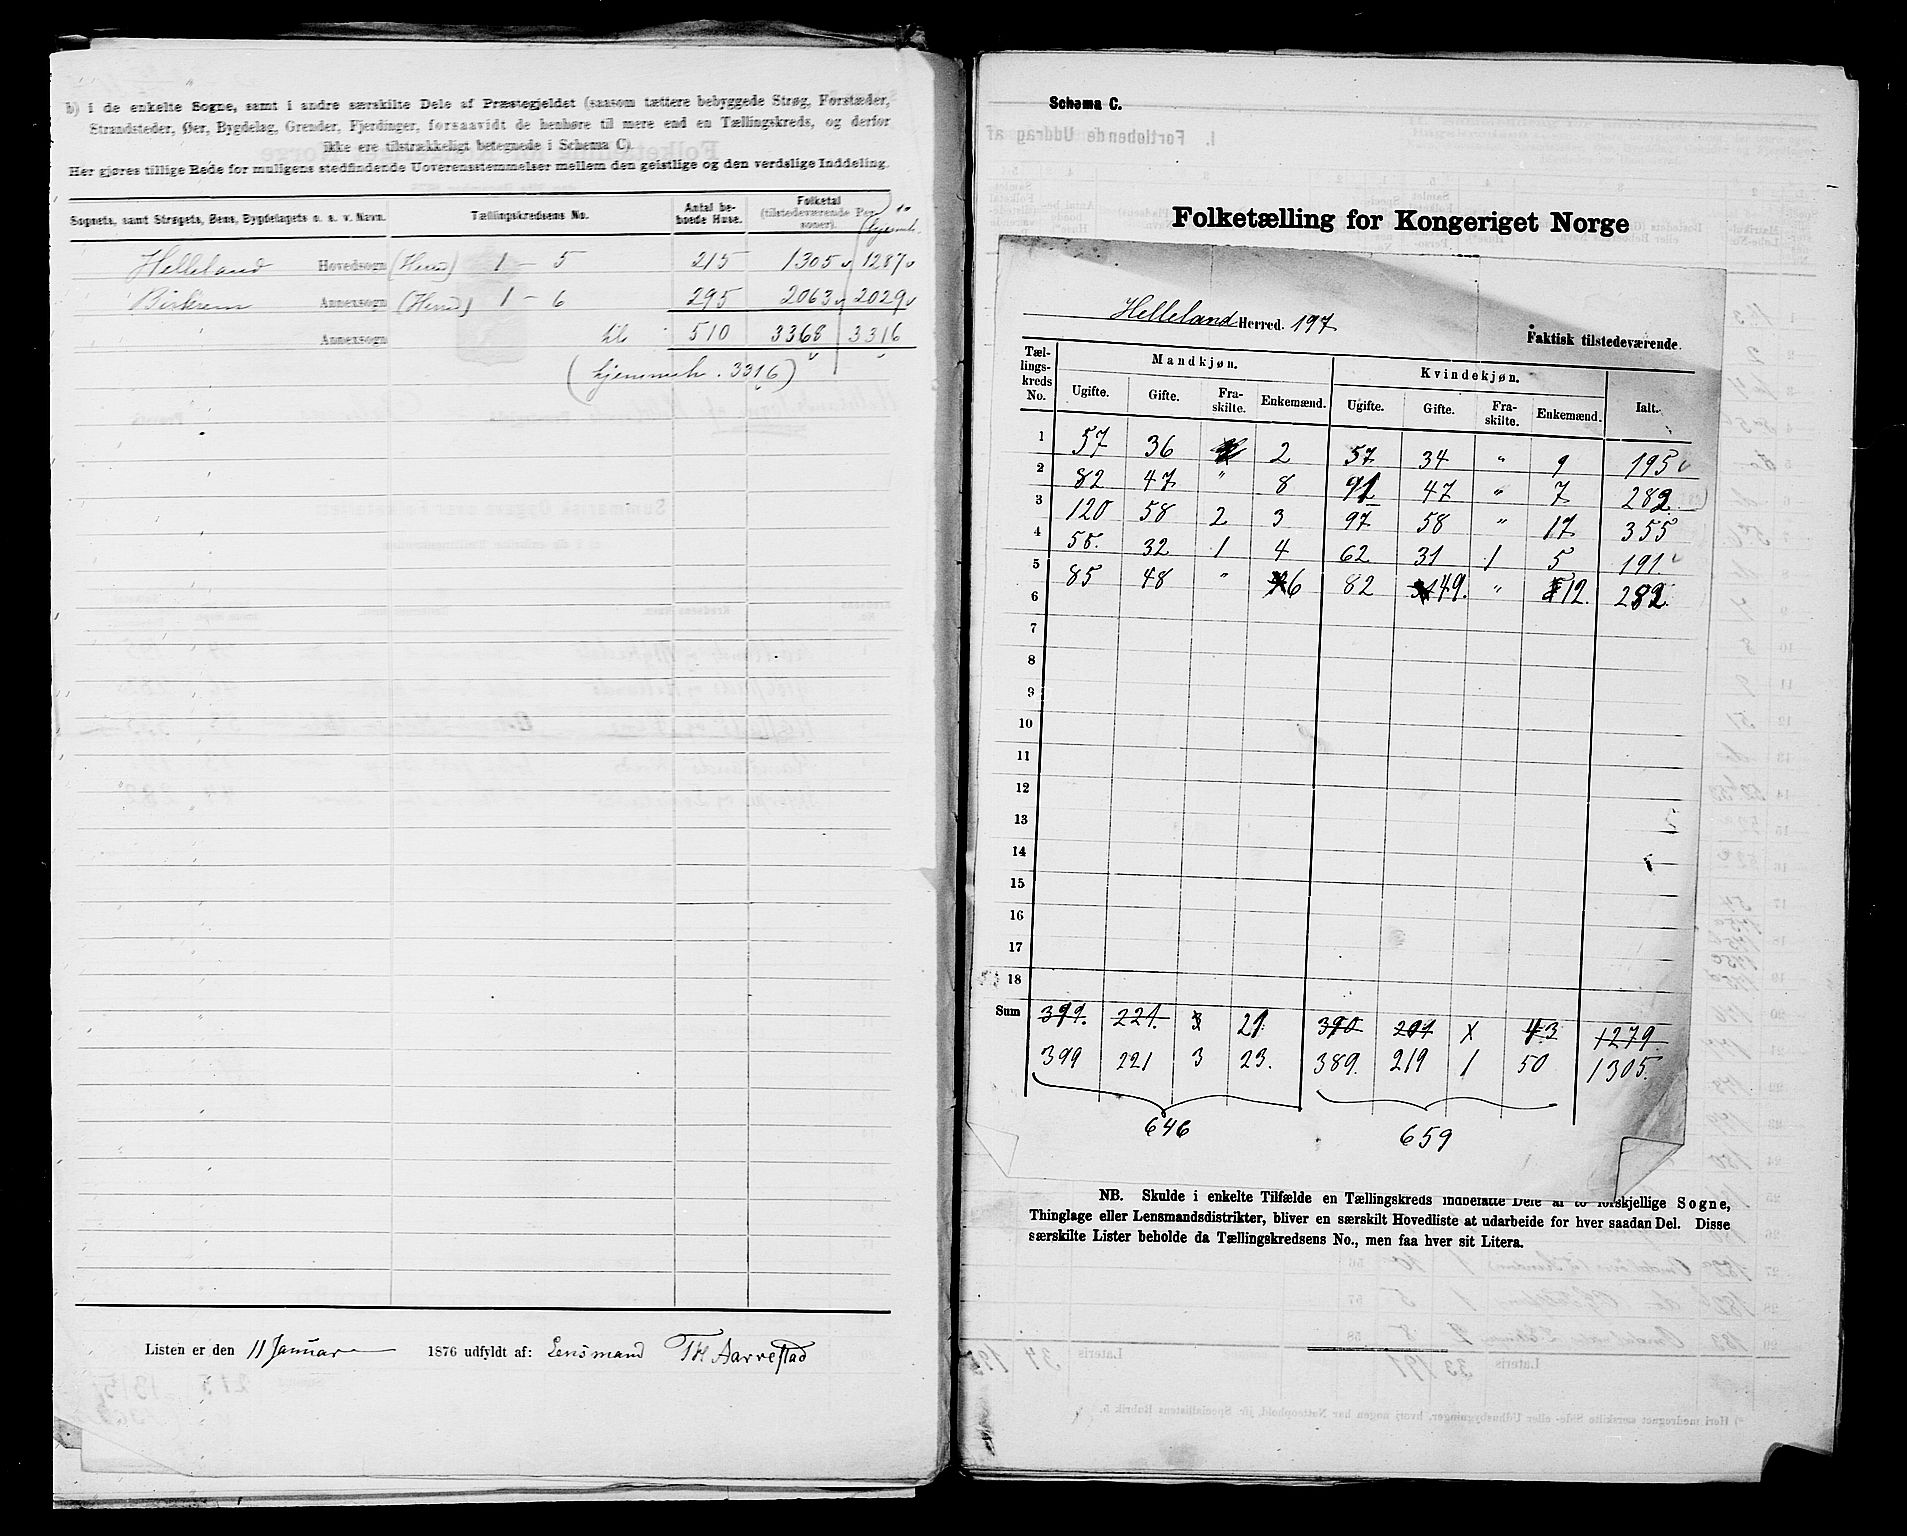 b) i de enkelte Sogne, samt i andre særskilte Dele af Præstegjeldet (saasom tættere bebyggede Strøg, Forstæder,
Strandsteder, Øer, Bygdelag, Grender, Fjerdinger, forsaavidt de henhøre til mere end en Tællingskreds, og derfor
ikke ere tilstrækkeligt betegnede i Schema C).
Her gjøres tillige Rede for muligens stedfindende Uoverensstemmelser mellem den geistlige og den verdslige Inddeling.
Sognets, samt Strøgets, Øens, Bygdelagets o. s. v. Navn. Tællingskredsens No. Antal beboede Huse. Folketal (tilstedeværende Personer). hjemmh.
Helleland Hovedsogn (Herred) 1 - 5 215 1305 1287
Birkrem Annexsogn (Herred) 1 - 6 295 2063 2029
Annexsogn til 510 3368 3316
(hjemmeh. 3316)
Listen er den 11 Januar 1876 udfyldt af: Lensmand TH Aarrestad
Schema C.
Folketælling for Kongeriget Norge
Helleland Herred. 197
Faktisk tilstedeværende.
Tællingskreds No. Mandkjøn. Kvindekjøn. Ialt.
Ugifte. Gifte. Fraskilte. Enkemænd. Ugifte. Gifte. Fraskilte. Enkemænd.
1 57 36 2 57 34 " 9 195
2 82 47 " 8 91 47 " 7 282
3 120 58 2 3 97 58 " 17 355
4 55. 32 1 4 62 31 1 5 191
5 85 48 " 6 82 49. " 12. 282.
6
7
8
9
10
11
12
13
14
15
16
17
18
Sum 399. 221. 3 21 390 201 x 43 1279
399 221 3 23. 389. 219 1 50 1305.
646 659
NB. Skulde i enkelte Tilfælde en Tællingskreds indbefatte Dele af to forskjellige Sogne,
Thinglage eller Lensmandsdistrikter, bliver en særskilt Hovedliste at udarbeide for hver saadan Del. Disse
særskilte Lister beholde da Tællingskredsens No., men faa hver sit Litera.